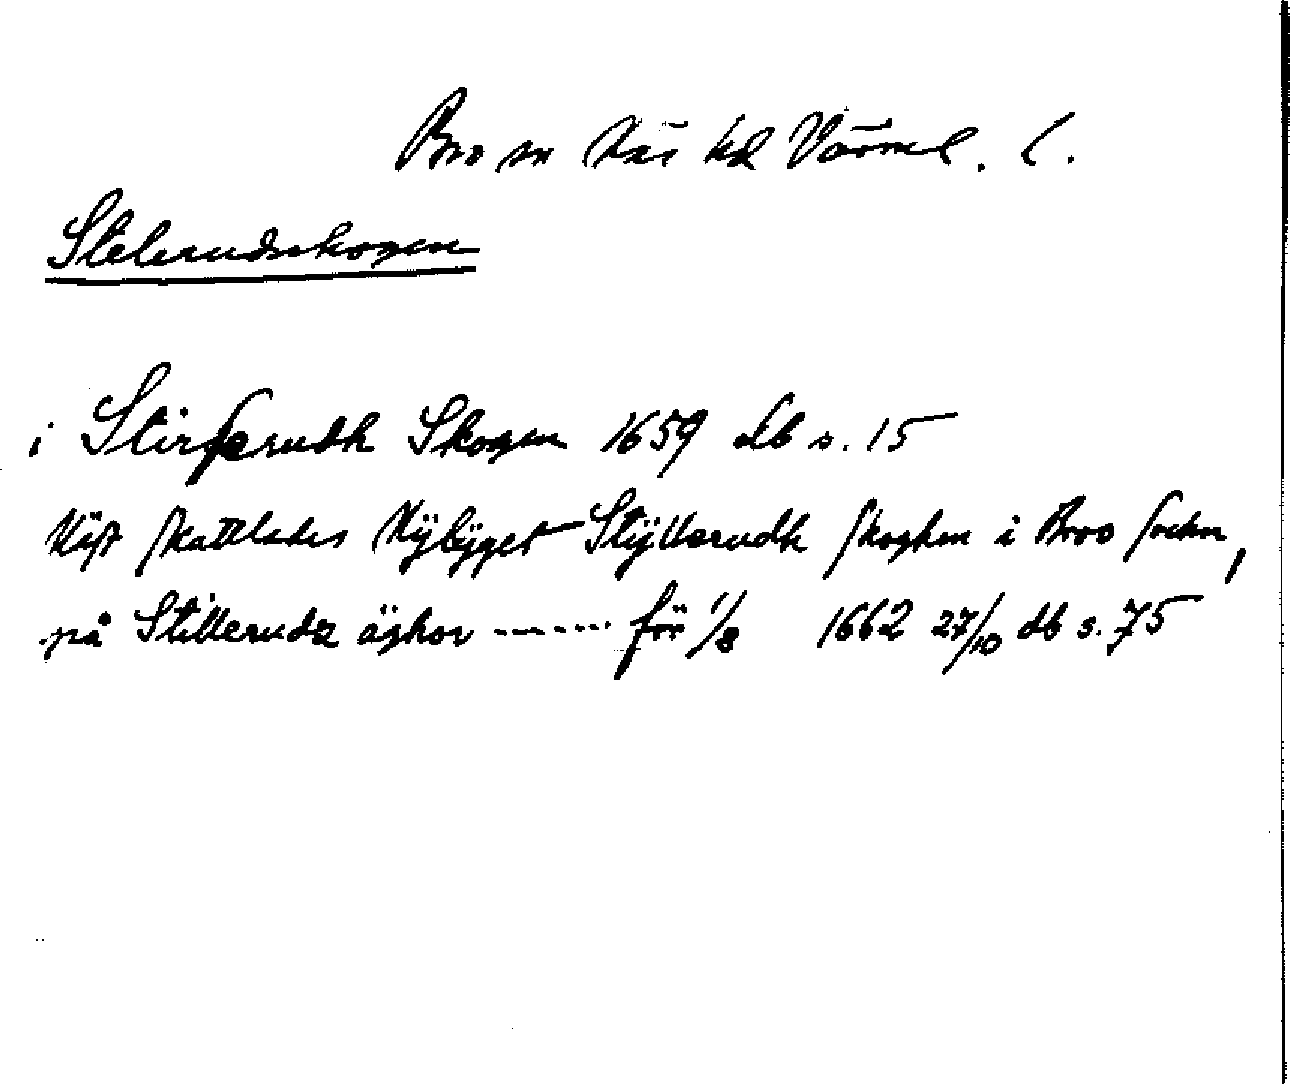 Bro sn Näs hd Värml. l.
Stelerudskogen
i Stirferudh Skogen 1659 db s. 15
skattlades Nÿbÿget Stÿllerudh skoghen i Broo sochn,
på Stillerudz äghor ------- för 1/8 1662 27/10 db s. 75